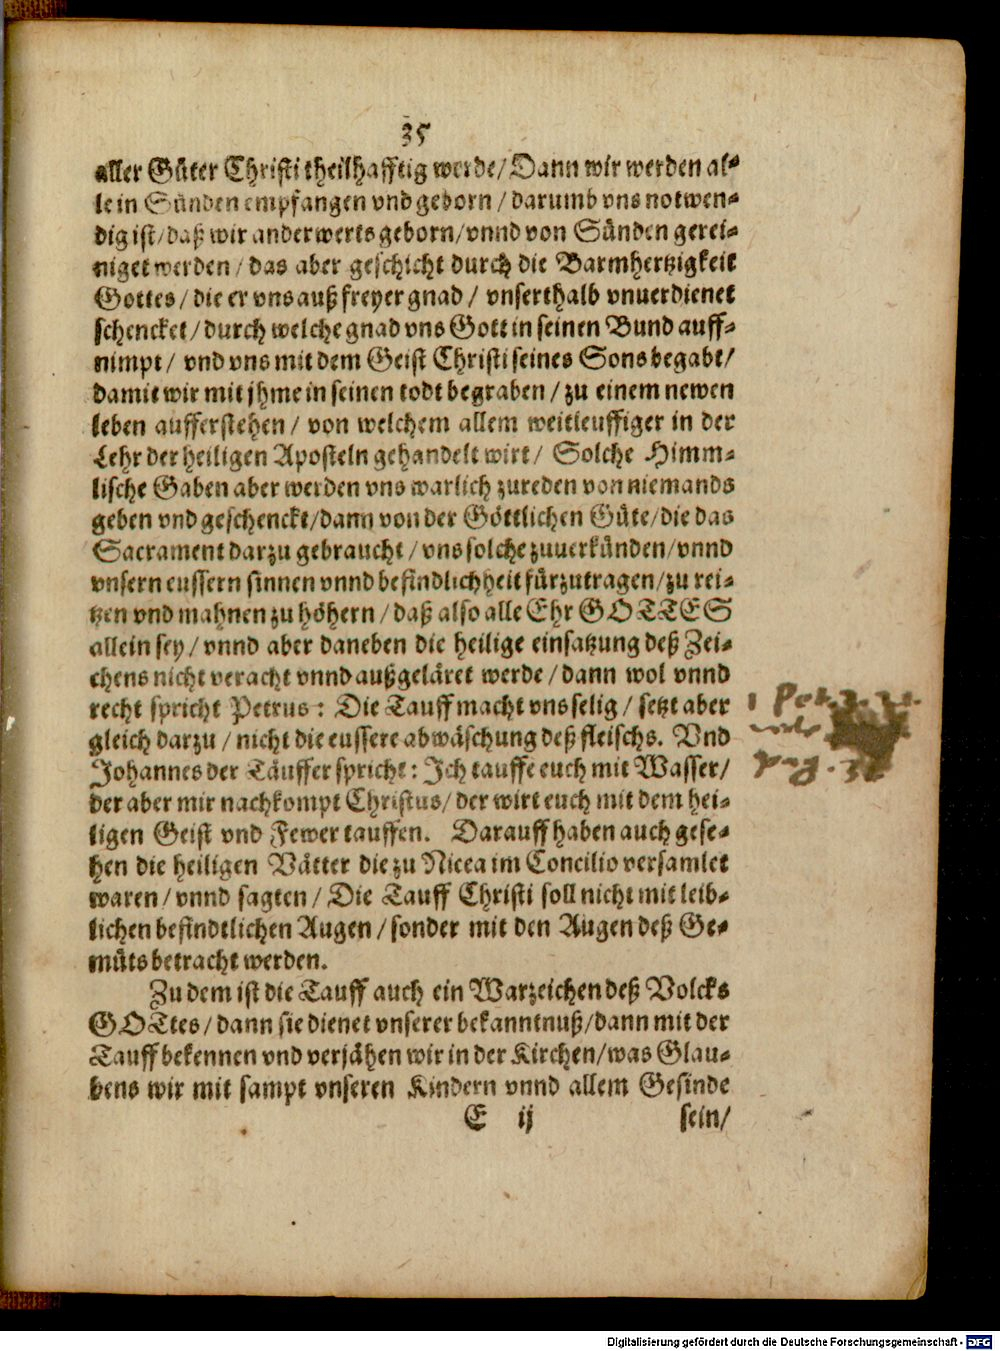 35
aller Güter Christi theilhafftig werde/ Dann wir werden al⸗
le in Sünden empfangen vnd geborn / darumb vns notwen⸗
dig ist/ daß wir anderwerts geborn/ vnnd von Sünden gerei⸗
niget werden / das aber geschicht durch die Barmhertzigkeit
Gottes / die er vns auß freyer gnad / vnserthalb vnuerdienet
schencket / durch welche gnad vns Gott in seinen Bund auff⸗
nimpt / vnd vns mit dem Geist Christi seines Sons begabt/
damit wir mit jhme in seinen todt begraben / zu einem newen
leben aufferstehen / von welchem allem weitleuffiger in der
Lehr der heiligen Aposteln gehandelt wirt/ Solche Himm⸗
lische Gaben aber werden vns warlich zureden von niemands
geben vnd geschenckt/dann von der Göttlichen Güte/die das
Sacrament darzu gebraucht / vns solche zuuerkünden/vnnd
vnsern eussern sinnen vnnd befindlichheit fürzutragen/zu rei⸗
tzen vnd mahnen zu höhern / daß also alle Ehr GOTTES
allein sey / vnnd aber daneben die heilige einsatzung deß Zei⸗
chens nicht veracht vnnd außgeläret werde / dann wol vnnd
recht spricht Petrus : Die Tauff macht vns selig / setzt aber
gleich darzu / nicht die eussere abwäschung deß fleischs. Vnd
Johannes der Täuffer spricht : Ich tauffe euch mit Wasser/
der aber mir nachkompt Christus/ der wirt euch mit dem hei⸗
ligen Geist vnd Fewer tauffen. Darauff haben auch gese⸗
hen die heiligen Vätter die zu Nicea im Concilio versamlet
waren / vnnd sagten / Die Tauff Christi soll nicht mit leib⸗
lichen befindtlichen Augen / sonder mit den Augen deß Ge⸗
müts betracht werden.
Zu dem ist die Tauff auch ein Warzeichen deß Volcks
GOTtes / dann sie dienet vnserer bekanntnuß/dann mit der
Tauff bekennen vnd verjähen wir in der Kirchen/was Glau⸗
bens wir mit sampt vnseren Kindern vnnd allem Gesinde
E ij sein/
1 Pet. 3.
pag.
Digitalisierung gefördert durch die Deutsche Forschungsgemeinschaft - DFG